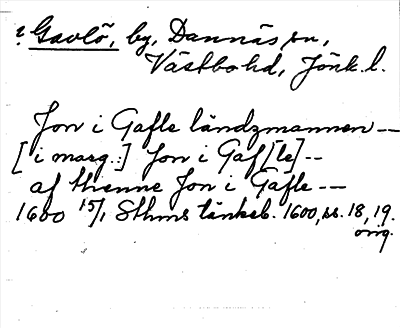 ? Gavlö, by, Dannäs sn,
Västbo hd, Jönk. l.
Jon i Gafle ländzmannen --
[i marg.:] Jon i Gaf[le] --
af thenne Jon i Gafle --
1600 15/1 Sthms tänkeb. 1600, ss. 18, 19.
orig.